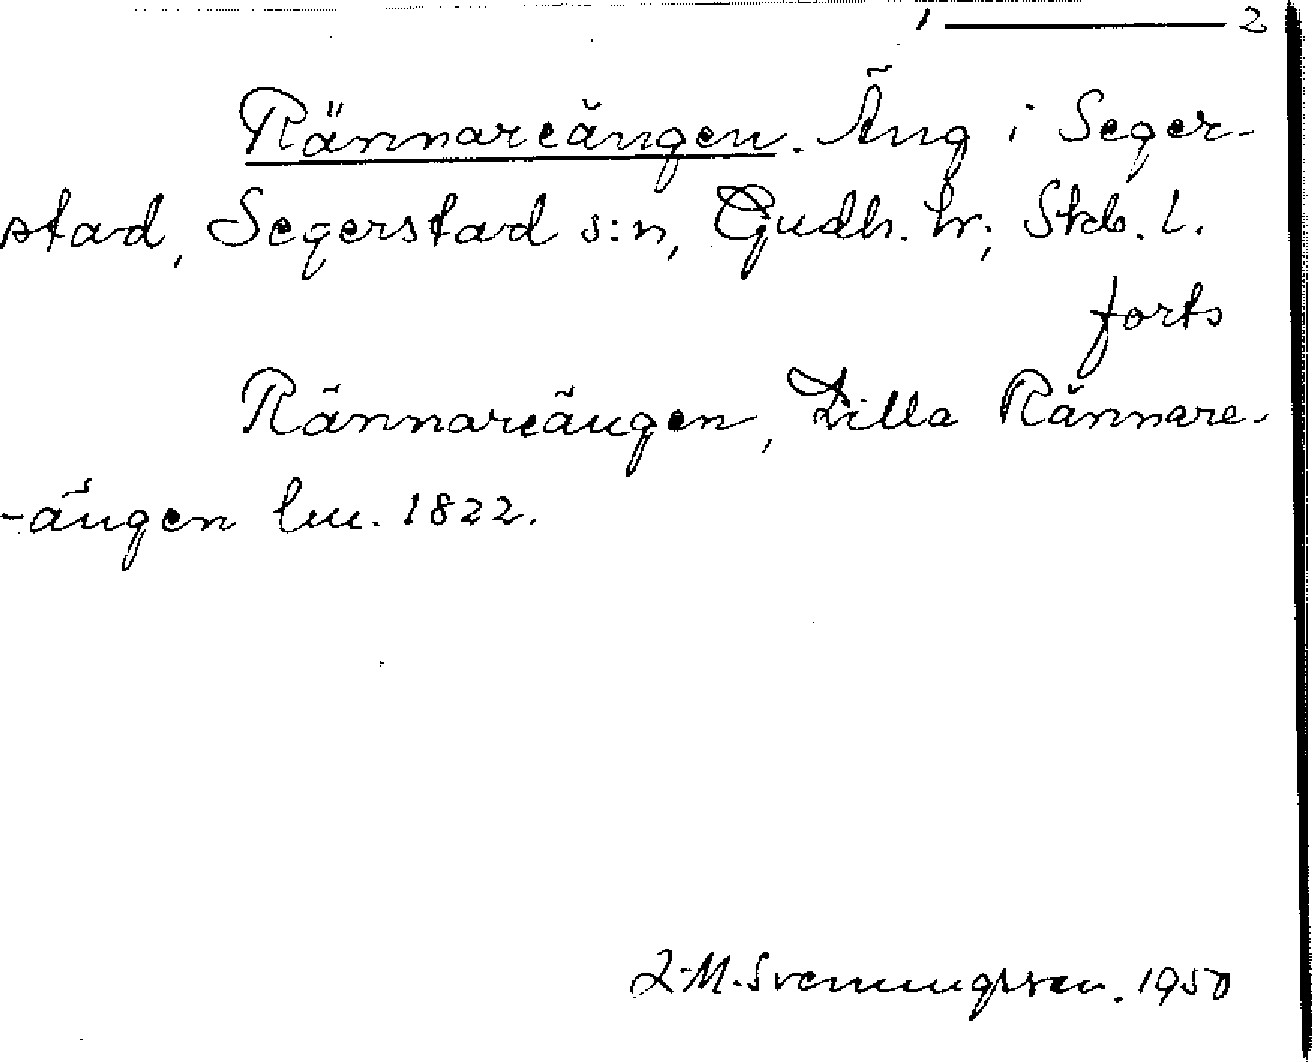 1 ——— 2
Rännareängen. Äng i Seger-
stad, Segerstad s:n, Gudh. hr, Skb. l.
forts
Rännareängen, Lilla Rännare-
-ängen lm. 1822.
L-M. Svenungsson. 1950